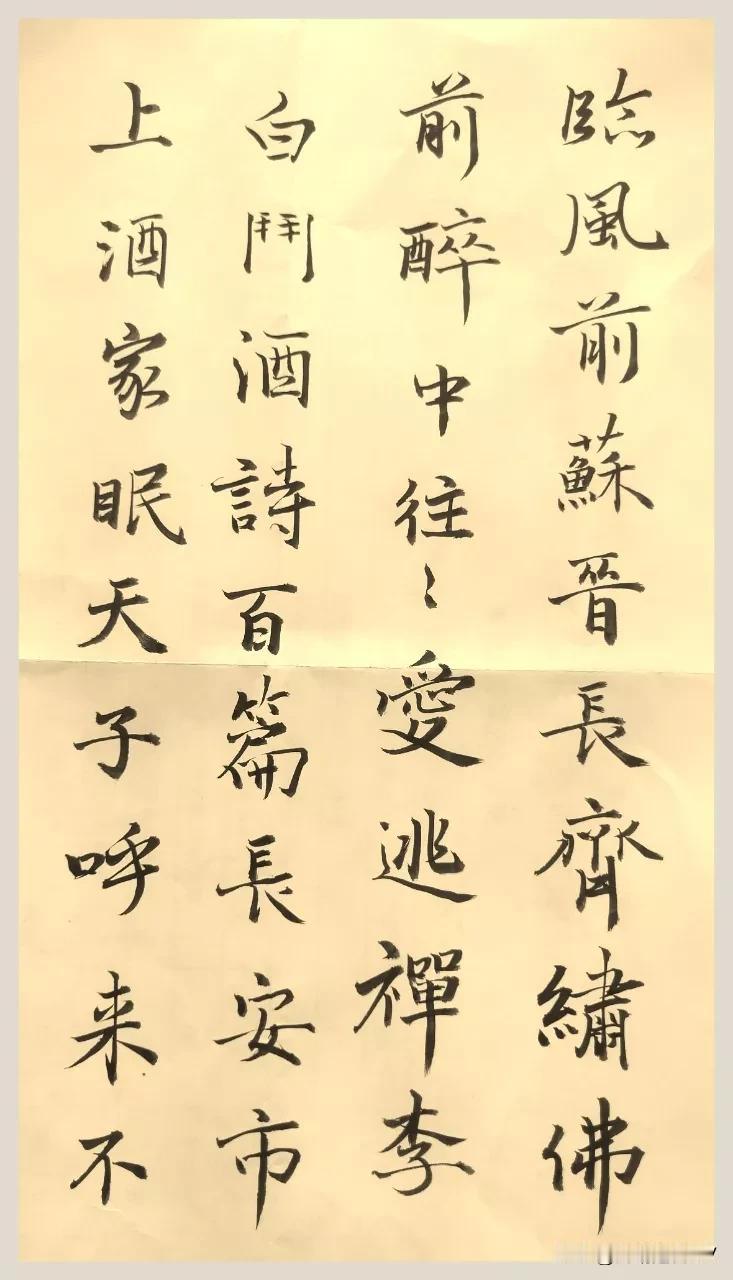 臨風前蘇晉長齊繡佛
前醉中往〻愛逃禪李
白鬥酒詩百篇長安市
上酒家眠天子呼来不